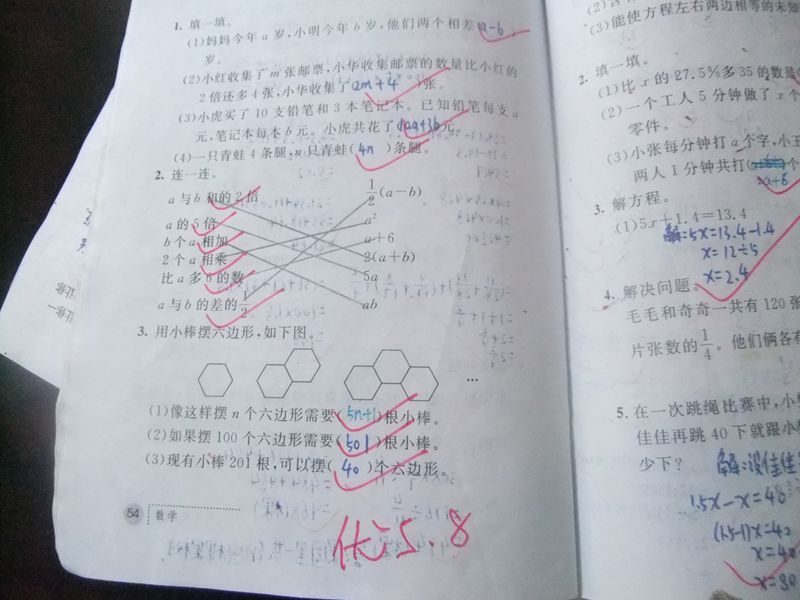 1. 填一填。
(1)妈妈今年 a 岁,小明今年 b 岁,他们两个相差(a-b)
岁。
(2)小红收集了 m 张邮票,小华收集邮票的数量比小红的
2 倍还多 4 张,小华收集了(2m+4)张。
(3)小虎买了 10 支铅笔和 3 本笔记本。已知铅笔每支 a
元,笔记本每本 b 元。小虎共花了(10a+3b)元。
(4)一只青蛙 4 条腿,n 只青蛙(4n)条腿。
2. 连一连。
a 与 b 和的 2 倍 1/2(a-b)
a 的 5 倍 a²
b 个 a 相加 a+6
2 个 a 相乘 2(a+b)
比 a 多 6 的数 5a
a 与 b 的差的 1/2 ab
3. 用小棒摆六边形,如下图。
…
(1)像这样摆 n 个六边形需要(5n+1)根小棒。
(2)如果摆 100 个六边形需要(501)根小棒。
(3)现有小棒 201 根,可以摆(40)个六边形。
54 数学
优 5.8
(3)能使方程左右两边相等的未知
2. 填一填。
(1)比 x 的 27.5%多 35 的数是
(2)一个工人 5 分钟做了 x 个
零件。
(3)小张每分钟打 a 个字,小王
两人 1 分钟共打(
3. 解方程。
(1)5x+1.4=13.4
解:5x=13.4-1.4
x=12÷5
x=2.4
4. 解决问题。
毛毛和奇奇一共有 120 张
片张数的 1/4。他们俩各有
5. 在一次跳绳比赛中,小
佳佳再跳 40 下就跟小
少下?
解:设佳佳
1.5x-x=40
(1.5-1)x=40
x=40
x=80